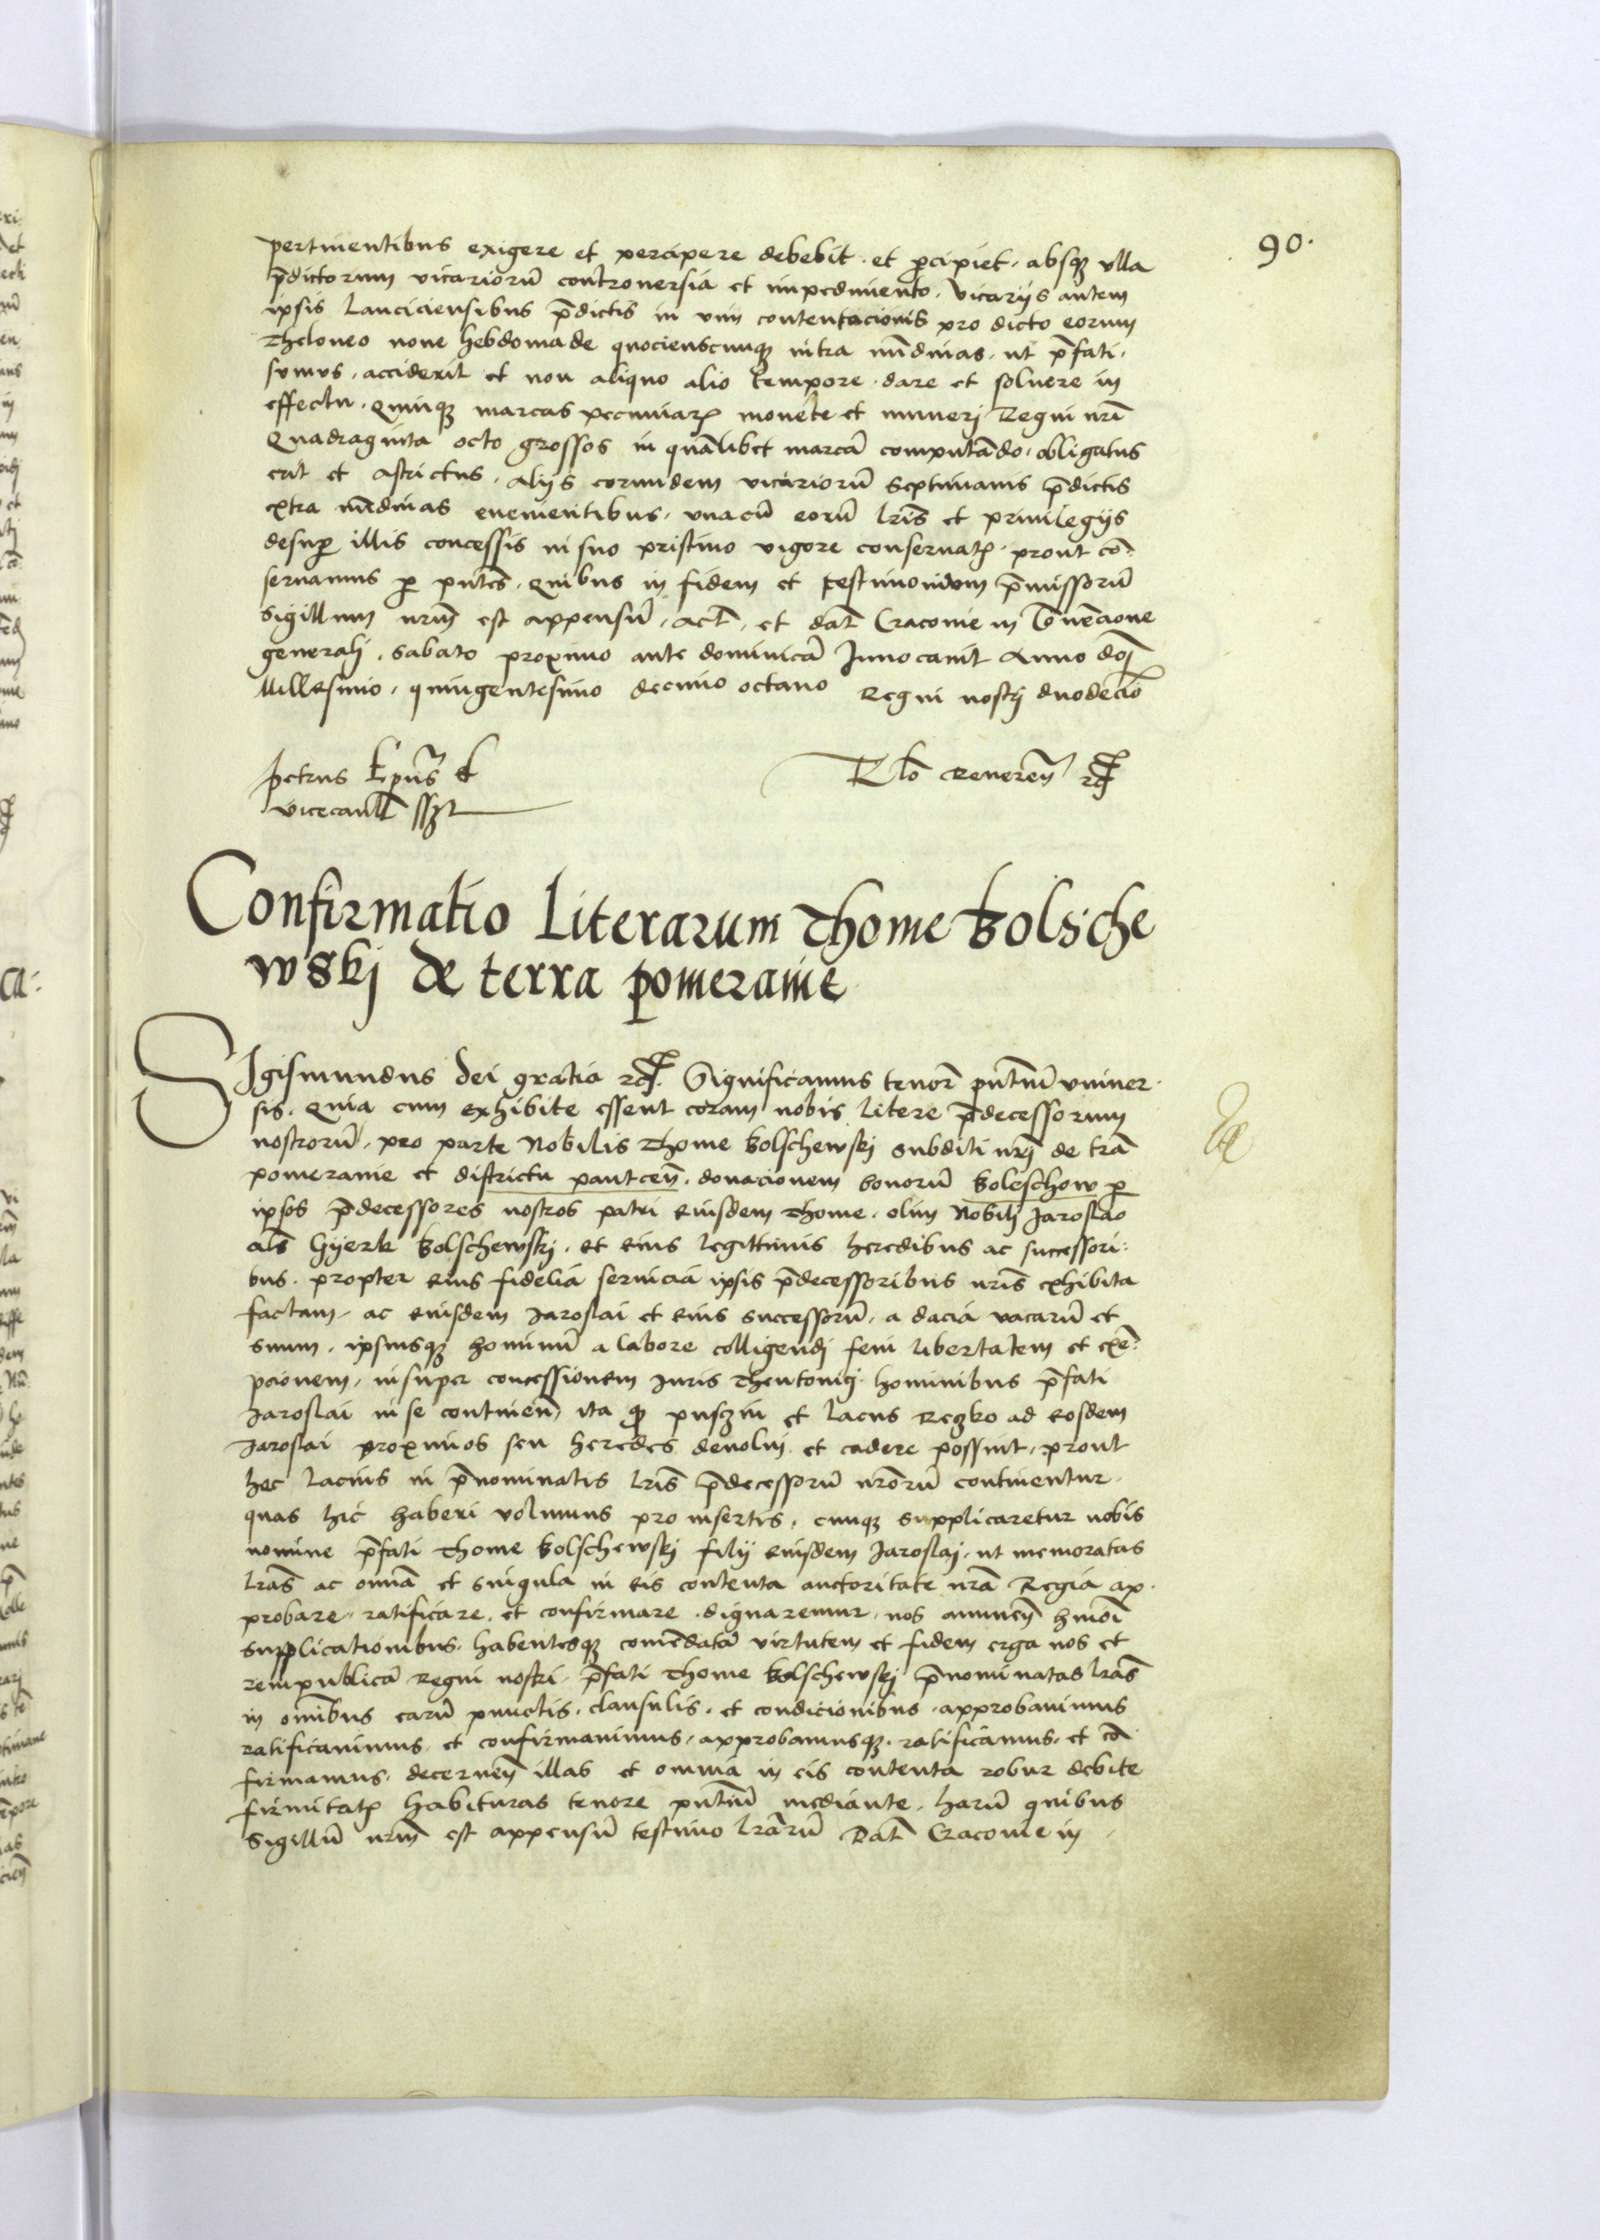 90.
pertinentibus exigere et percipere debebit. et p̱cipiet. absqꝫ vlla
p̄dictorum vicariorū controuersia et impedimento. Vicarijs autem
ipsis Lanciciensibus p̄dictis in vim contentacionis pro dicto eorum
Theloneo none hebdomade quocienscunqꝫ intra nūdinas. ut p̄fati
sumus. acciderit et non aliquo alio tempore. dare et soluere in
effectu. quinqꝫ marcas pecuniarꝫ monete et numeri Regni nrī
Quadraginta octo grossos in quālibet marcā computādo. obligatus
erit et astrictus. Alijs eorundem vicariorū septimanis p̄dictis
extra nūdinas euenientibus. vnacū eorū lrīs et priuilegijs
desuꝑ illis concessis in suo pristino vigore conseruatꝫ. prout cō:
seruamus ꝑ pn̄tes. Quibus in fidem et testimonium p̄missorū
Sigillum nrm̄ est appensū. Act̄. et dat̄ Cracouie in Cōuēcione
generali. Sabato proximo ante dominicā Inuocauit Anno dn̄j
Millesimo. quingentesimo decimo octauo Regni nostrj duodecīo
Petrus Ep̄us &
vicecancell̄ sszt
Rel̄o Reueren̄ &c
Confirmatio Literarum Thome Kolsche
wskj de terra pomeranie
SIgismundus dei gratia &c. Significamus tenorē pn̄tiū vniuer
sis. Quia cum exhibite essent coram nobis litere p̄decessorum
nostrorū. pro parte Nobilis Thome Kolschewskj subditi nrī de trā
pomeranie et districtu pautcen̄. donacionem bonorū Koleschow ꝑ
ipsos p̄decessores nostros patri eiusdem Thome. olim Nobilj Jaroslao
al̄s Gyerk Kolschewskj. et eius legittimis heredibus ac successori:
bus. propter eius fidelia seruicia ipsis p̄decessoribus nrīs exhibita
factam. ac eiusdem Jaroslai et eius successorū. a dacia vacarū et
suum. ipsiusqꝫ hominū a labore colligendj feni libertatem et exē:
pcionem. insuper concessionem Juris Theutonicj hominibus p̄fati
Jaroslai in se continen̄. ita ꝙ puszin et lacus Reczko ad eosdem
Jaroslai proximos seu heredes deuolui et cadere possint. prout
hec lacius in p̄nominatis lrīs p̄decessorū nrōrū continentur.
quas hic haberi volumus pro insertis. cumqꝫ supplicaretur nobis
nomine p̄fati Thome Kolschewskj filij eiusdem Jaroslaj. ut memoratas
lrās ac omīa et singula in eis contenta auctoritate nrā Regia ap.
probare. ratificare. et confirmare. dignaremur. nos annuen̄ hmōi
supplicationibus. habentesqꝫ comēdatā virtutem et fidem erga nos et
rempublicā Regni nostri. p̄fati Thome Kolschewskj p̄nominatas lrās
in omībus earū punctis. clausulis. et condicionibus. approbauimus
ratificauimus. et confirmauimus. approbamusqꝫ. ratificamus. et cō
firmamus. decernen̄ illas et omnia in eis contenta robur debite
firmitatꝫ habituras tenore pn̄tiū mediante. harū quibus
Sigillū nrm̄ est appensū testimo lrārū Dat̄ Cracouie in